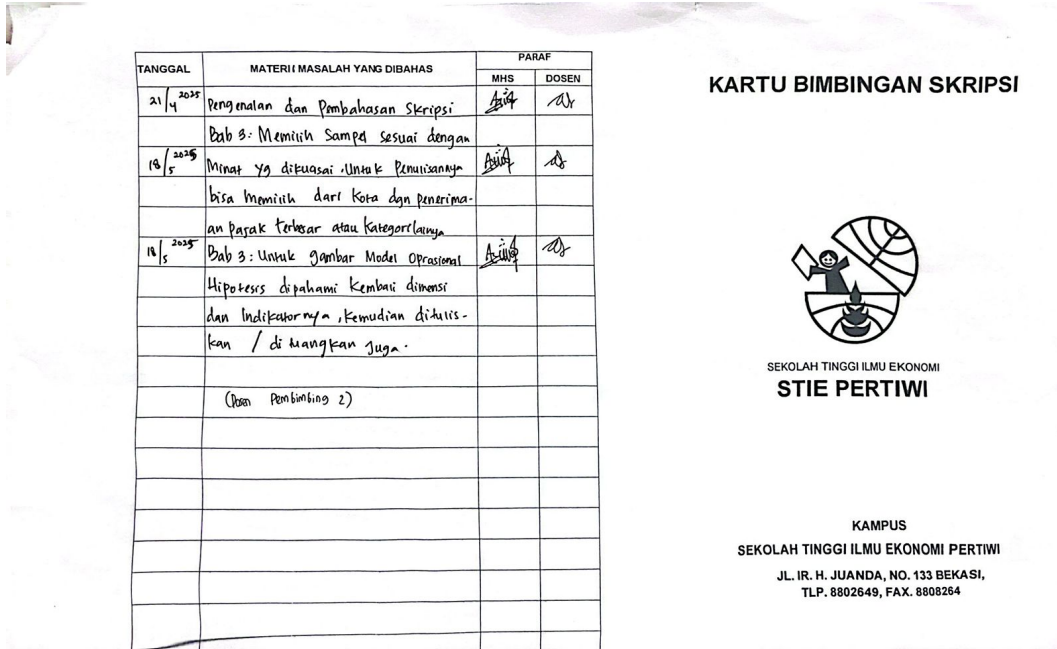 TANGGAL MATERI I MASALAH YANG DIBAHAS PARAF
MHS DOSEN
21/4 2025 Pengenalan dan Pembahasan Skripsi
Bab 3: Memilih Sampel sesuai dengan
18/5 2025 Minat yg dikuasai. Untuk Penulisannya
bisa memilih dari Kota dgn penerima-
an pajak terbesar atau Kategori lainnya
18/5 2025 Bab 3: Untuk gambar Model Oprasional
Hipotesis dipahami Kembali dimensi
dan Indikatornya, Kemudian ditulis-
kan / di tuangkan Juga.
(Dosen Pembimbing 2)
KARTU BIMBINGAN SKRIPSI
SEKOLAH TINGGI ILMU EKONOMI
STIE PERTIWI
KAMPUS
SEKOLAH TINGGI ILMU EKONOMI PERTIWI
JL. IR. H. JUANDA, NO. 133 BEKASI,
TLP. 8802649, FAX. 8808264